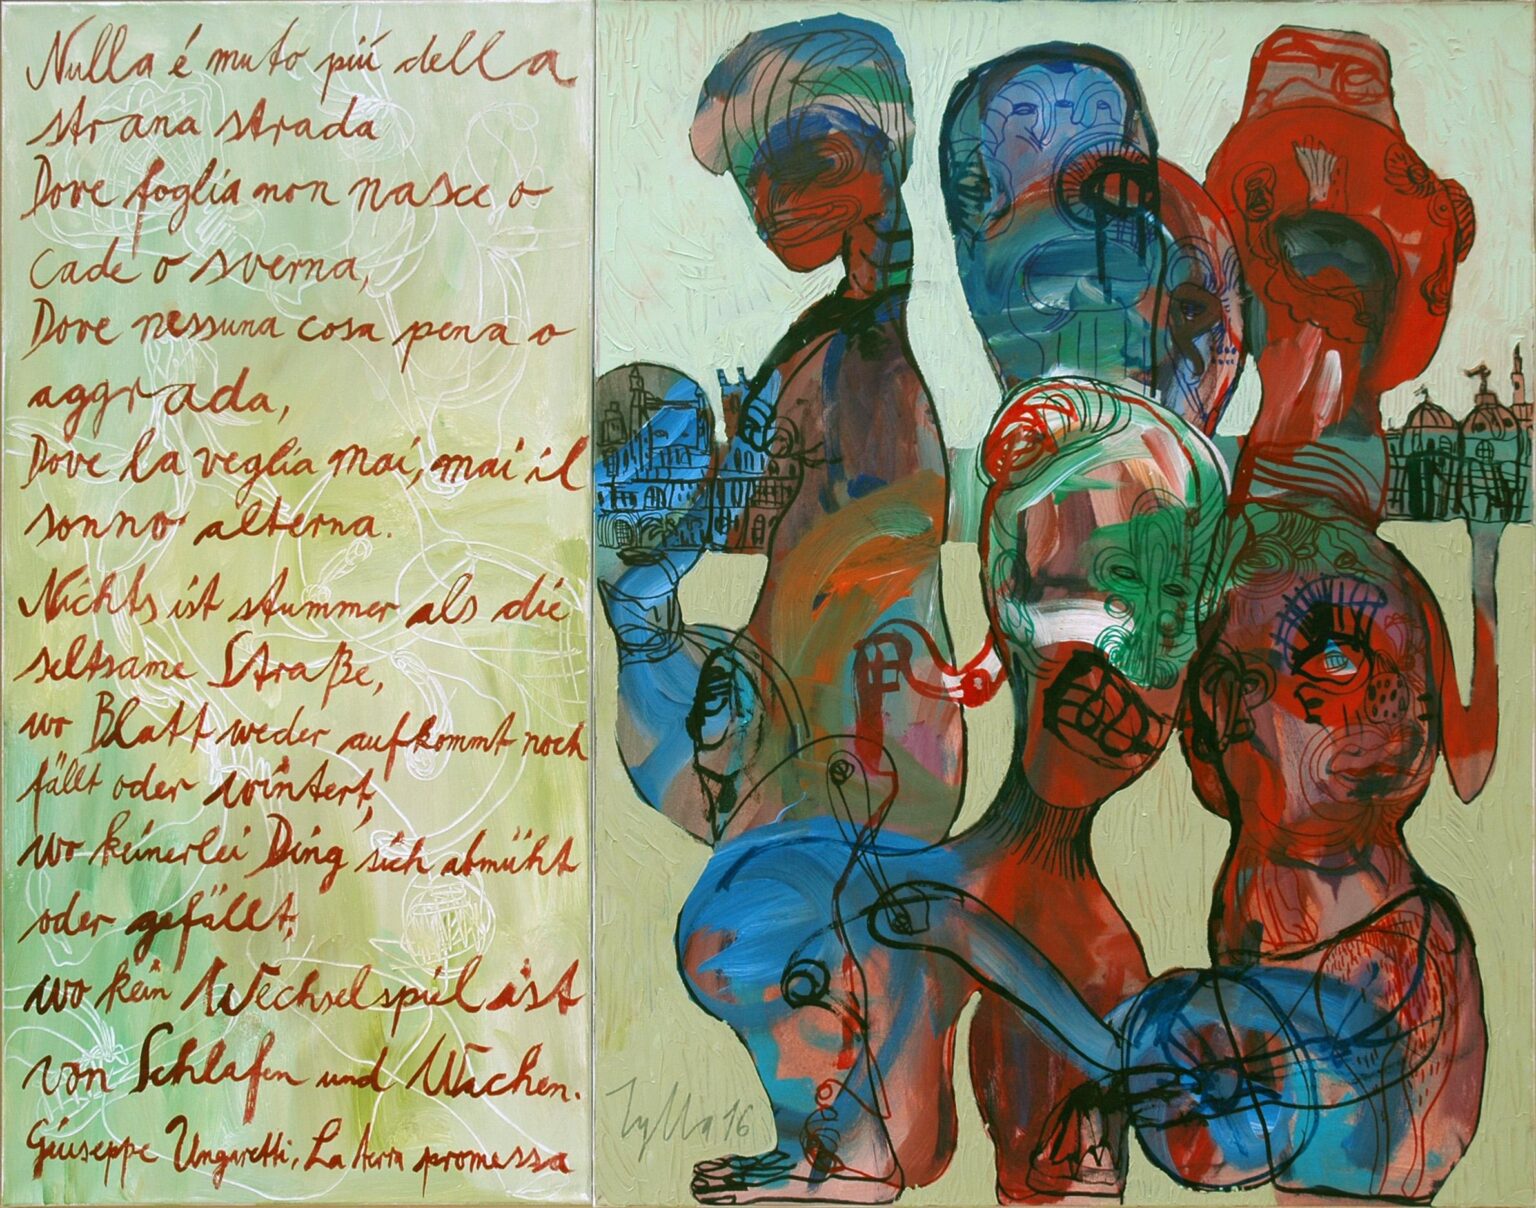 Nulla é muto piú della
strana strada
Dove foglia non nasce o
cade o sverna,
Dove nessuna cosa pena o
aggrada,
Dove la veglia mai, mai il
sonno alterna.
Nichts ist stummer als die
seltsame Straße,
wo Blatt weder aufkommt noch
fällt oder wintert,
wo keinerlei Ding sich abmüht
oder gefällt,
wo kein Wechselspiel ist
von Schlafen und Wachen.
Giuseppe Ungaretti, La terra promessa
Zylla 16